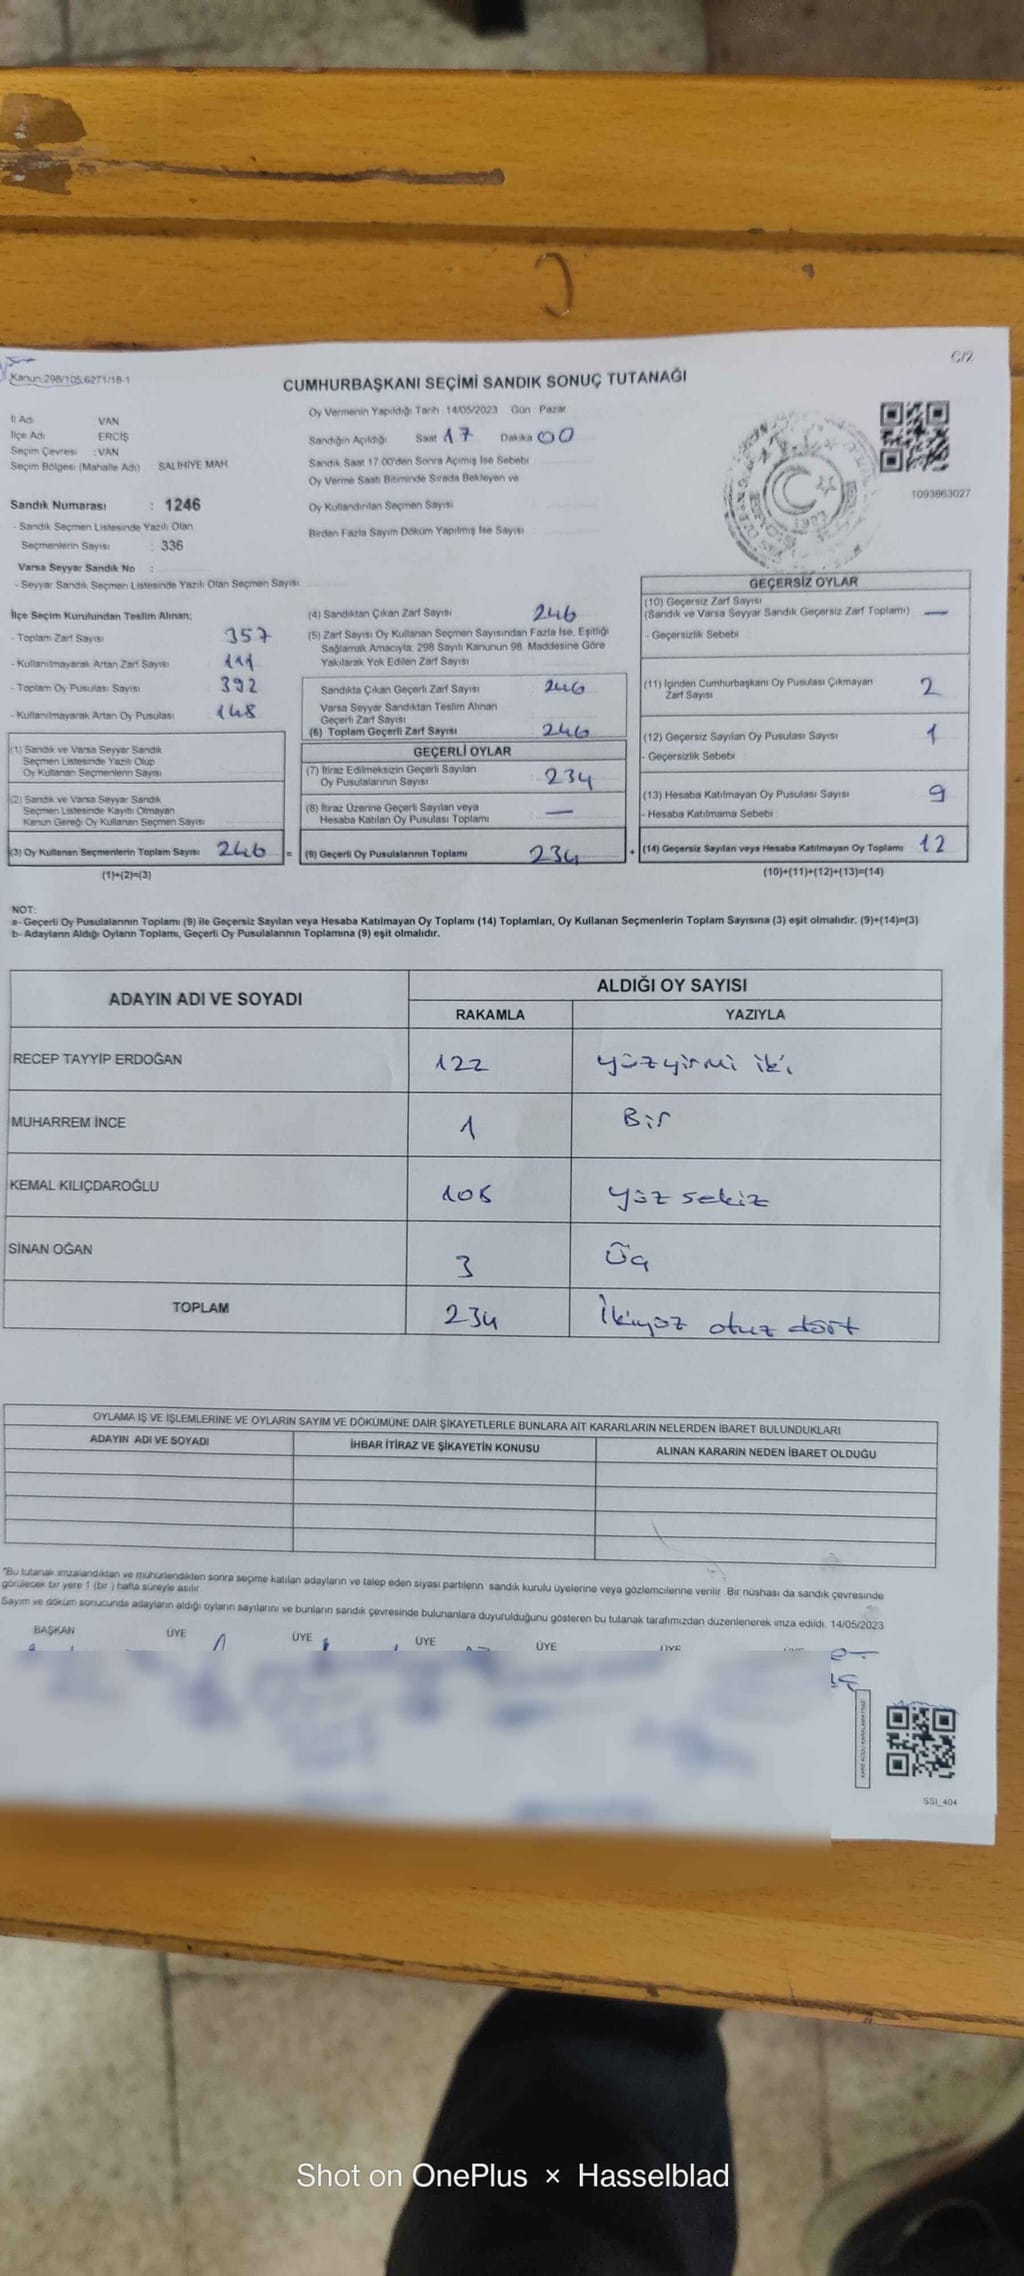 C/2
Kanun:298/105,6271/18-1
CUMHURBAŞKANI SEÇİMİ SANDIK SONUÇ TUTANAĞI
İl Adı : VAN
İlçe Adı : ERCİŞ
Seçim Çevresi : VAN
Seçim Bölgesi (Mahalle Adı) SALİHİYE MAH.
Oy Vermenin Yapıldığı Tarih :14/05/2023 Gün : Pazar
Sandığın Açıldığı Saat 17 Dakika 00
Sandık Saat 17.00'den Sonra Açılmış İse Sebebi
Oy Verme Saati Bitiminde Sırada Bekleyen ve
Oy Kullandırılan Seçmen Sayısı
Birden Fazla Sayım Döküm Yapılmış İse Sayısı :
1093863027
Sandık Numarası : 1246
- Sandık Seçmen Listesinde Yazılı Olan
Seçmenlerin Sayısı : 336
Varsa Seyyar Sandık No :
- Seyyar Sandık Seçmen Listesinde Yazılı Olan Seçmen Sayısı
İlçe Seçim Kurulundan Teslim Alınan;
- Toplam Zarf Sayısı 357
- Kullanılmayarak Artan Zarf Sayısı 111
- Toplam Oy Pusulası Sayısı 392
- Kullanılmayarak Artan Oy Pusulası 148
(1) Sandık ve Varsa Seyyar Sandık
Seçmen Listesinde Yazılı Olup
Oy Kullanan Seçmenlerin Sayısı
(2) Sandık ve Varsa Seyyar Sandık
Seçmen Listesinde Kayıtlı Olmayan
Kanun Gereği Oy Kullanan Seçmen Sayısı
(3) Oy Kullanan Seçmenlerin Toplam Sayısı 246 =
(1)+(2)=(3)
(4) Sandıktan Çıkan Zarf Sayısı 246
(5) Zarf Sayısı Oy Kullanan Seçmen Sayısından Fazla İse, Eşitliği
Sağlamak Amacıyla; 298 Sayılı Kanunun 98. Maddesine Göre
Yakılarak Yok Edilen Zarf Sayısı
Sandıkta Çıkan Geçerli Zarf Sayısı 246
Varsa Seyyar Sandıktan Teslim Alınan
Geçerli Zarf Sayısı
(6) Toplam Geçerli Zarf Sayısı 246
GEÇERLİ OYLAR
(7) İtiraz Edilmeksizin Geçerli Sayılan
Oy Pusulalarının Sayısı : 234
(8) İtiraz Üzerine Geçerli Sayılan veya
Hesaba Katılan Oy Pusulası Toplamı : —
(9) Geçerli Oy Pusulalarının Toplamı 234 +
GEÇERSİZ OYLAR
(10) Geçersiz Zarf Sayısı
(Sandık ve Varsa Seyyar Sandık Geçersiz Zarf Toplamı) —
- Geçersizlik Sebebi
(11) İçinden Cumhurbaşkanı Oy Pusulası Çıkmayan
Zarf Sayısı 2
(12) Geçersiz Sayılan Oy Pusulası Sayısı 1
- Geçersizlik Sebebi
(13) Hesaba Katılmayan Oy Pusulası Sayısı 9
- Hesaba Katılmama Sebebi
(14) Geçersiz Sayılan veya Hesaba Katılmayan Oy Toplamı 12
(10)+(11)+(12)+(13)=(14)
NOT:
a- Geçerli Oy Pusulalarının Toplamı (9) ile Geçersiz Sayılan veya Hesaba Katılmayan Oy Toplamı (14) Toplamları, Oy Kullanan Seçmenlerin Toplam Sayısına (3) eşit olmalıdır. (9)+(14)=(3)
b- Adayların Aldığı Oyların Toplamı, Geçerli Oy Pusulalarının Toplamına (9) eşit olmalıdır.
ADAYIN ADI VE SOYADI
ALDIĞI OY SAYISI
RAKAMLA YAZIYLA
RECEP TAYYİP ERDOĞAN 122 yüzyirmi iki
MUHARREM İNCE 1 Bir
KEMAL KILIÇDAROĞLU 108 yüz sekiz
SİNAN OĞAN 3 Üç
TOPLAM 234 İkiyüz otuz dört
OYLAMA İŞ VE İŞLEMLERİNE VE OYLARIN SAYIM VE DÖKÜMÜNE DAİR ŞİKAYETLERLE BUNLARA AİT KARARLARIN NELERDEN İBARET BULUNDUKLARI
ADAYIN ADI VE SOYADI İHBAR İTİRAZ VE ŞİKAYETİN KONUSU ALINAN KARARIN NEDEN İBARET OLDUĞU
*Bu tutanak imzalandıktan ve mühürlendikten sonra seçime katılan adayların ve talep eden siyasi partilerin sandık kurulu üyelerine veya gözlemcilerine verilir. Bir nüshası da sandık çevresinde
görülecek bir yere 1 (bir) hafta süreyle asılır.
Sayım ve döküm sonucunda adayların aldığı oyların sayılarını ve bunların sandık çevresinde bulunanlara duyurulduğunu gösteren bu tutanak tarafımızdan düzenlenerek imza edildi. 14/05/2023
BAŞKAN ÜYE ÜYE ÜYE ÜYE ÜYE
SSI_404
Shot on OnePlus × Hasselblad